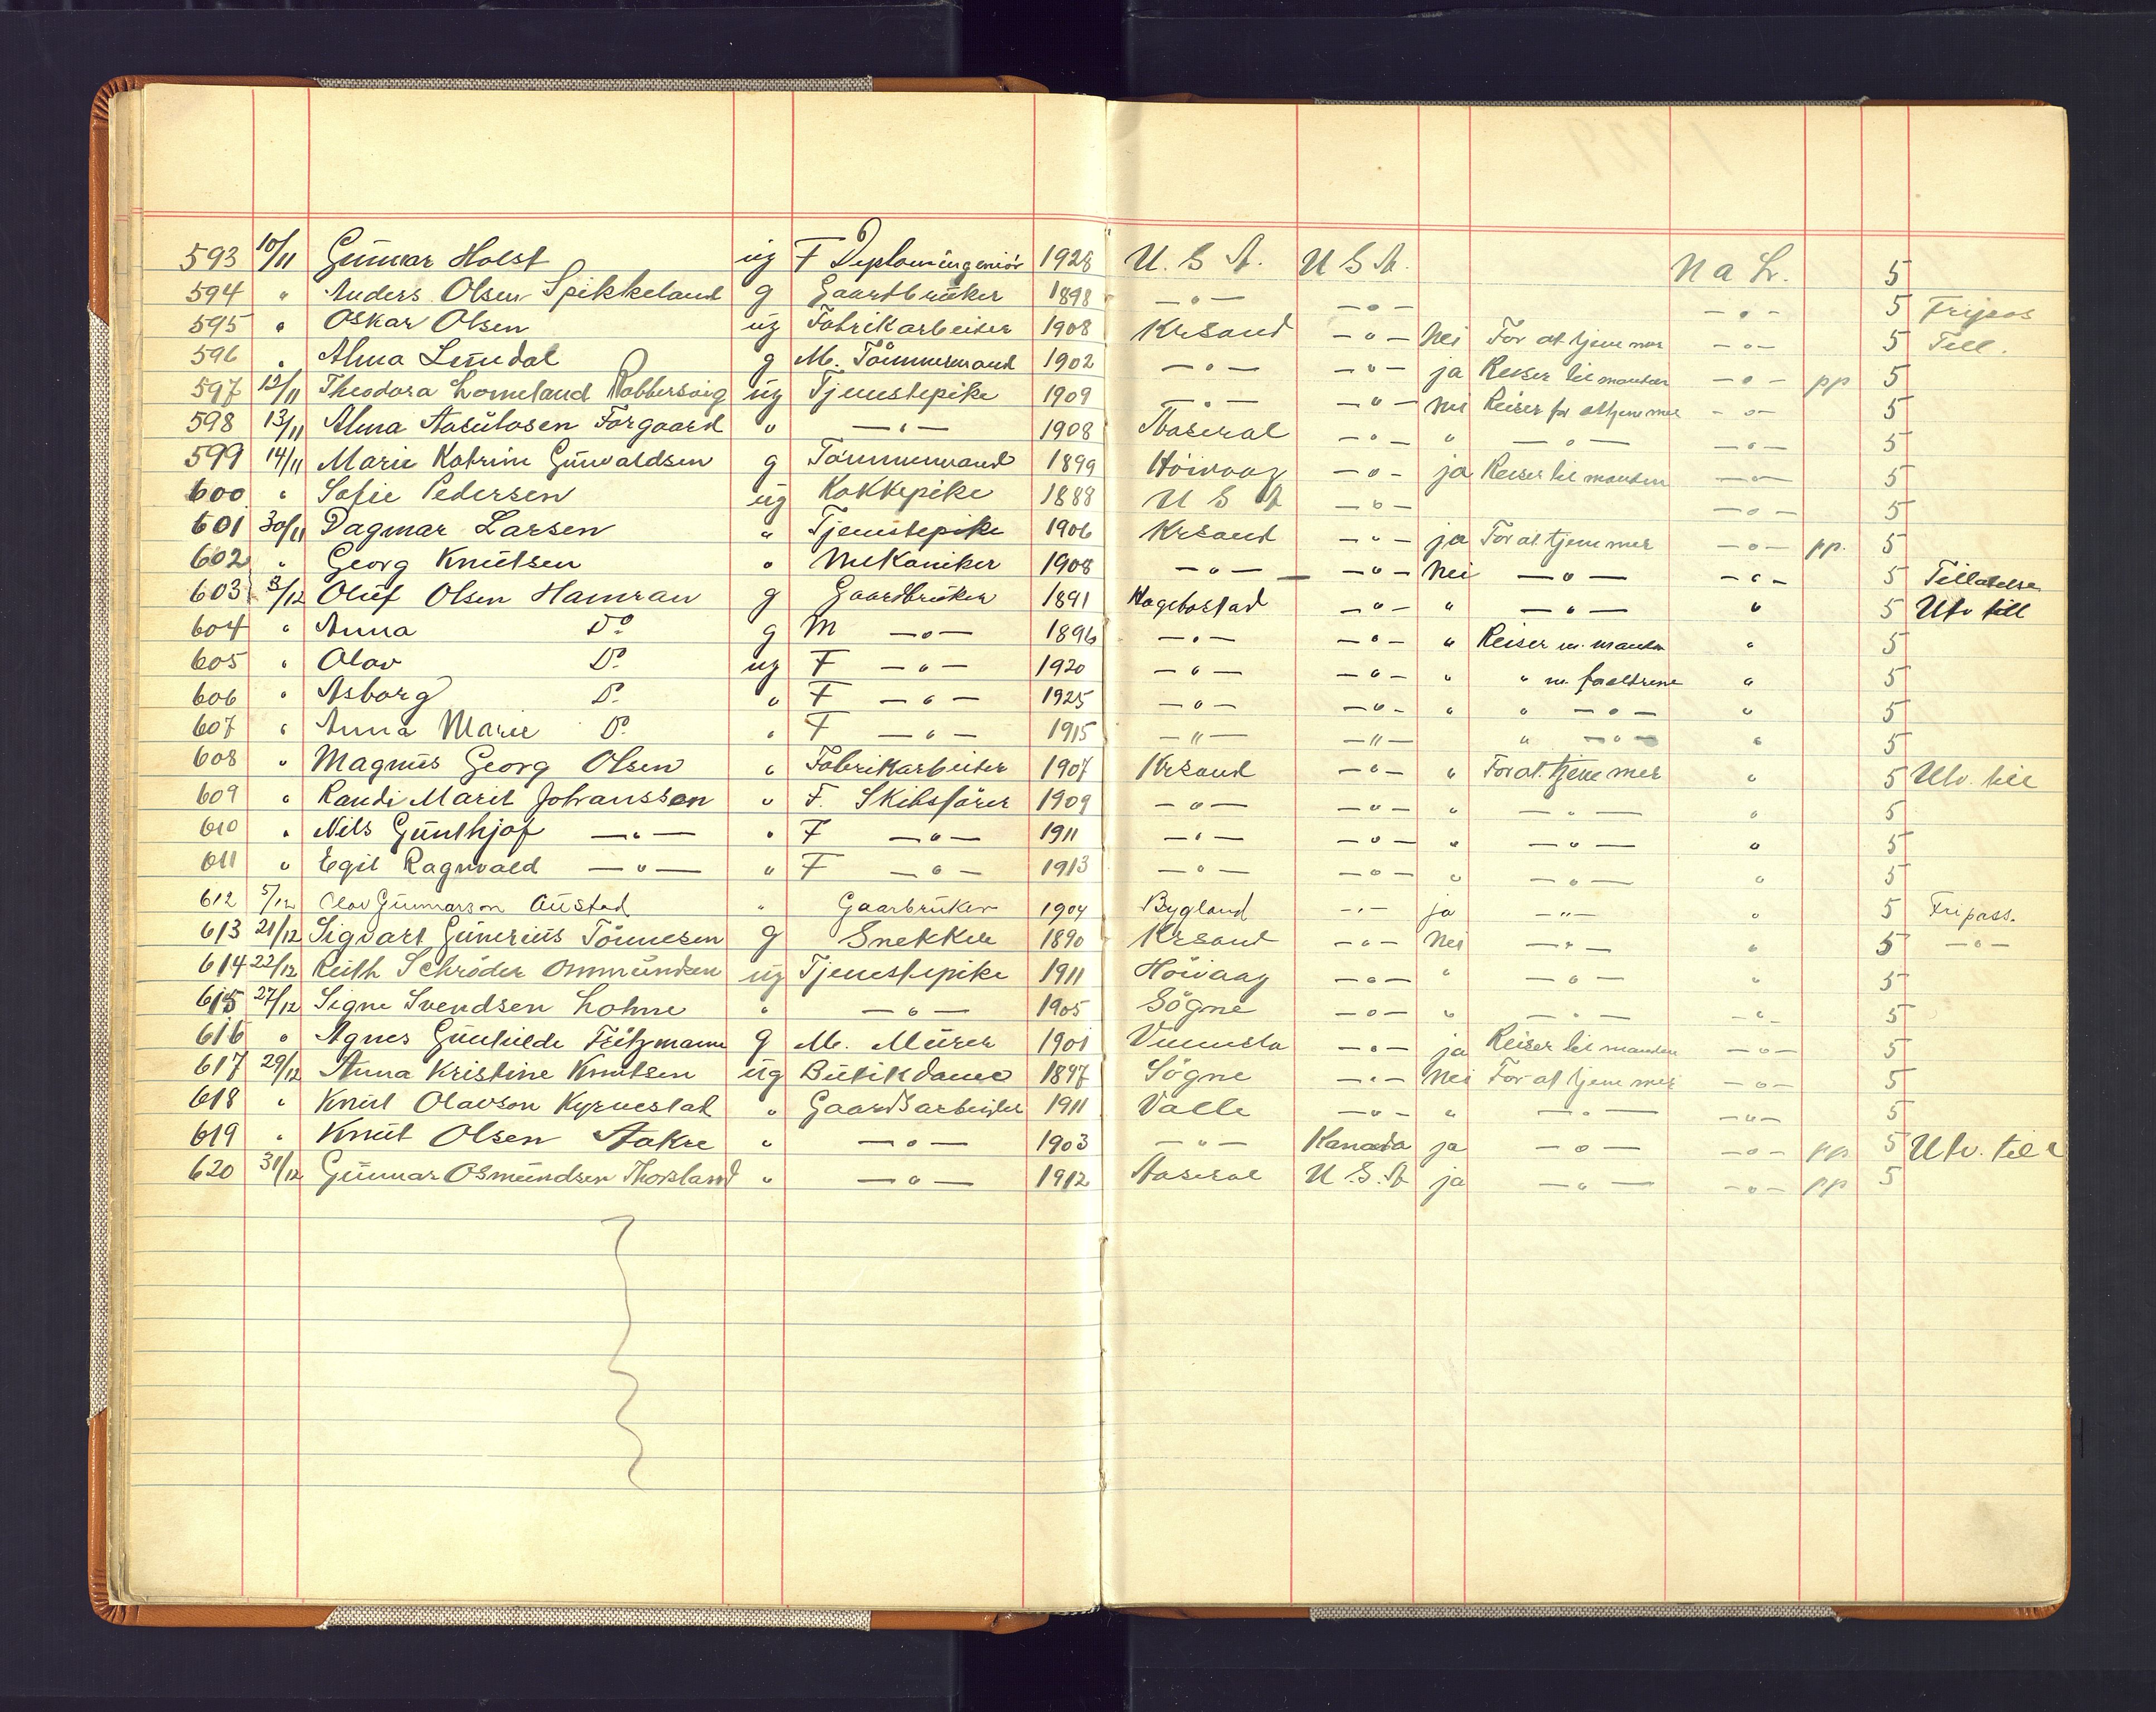 593 10/11 Gunnar Holst ug F Diplomingeniör 1928 U. S. A. U S A. N a L. 5
594 " Anders Olsen Spikkeland g Gaardbruker 1898 —"— —"— —"— 5 Fripas
595 " Oskar Olsen ug Fabrikarbeider 1908 Krsand —"— Nei For at tjene mer —"— 5 Till.
596 " Alma Lundal g M. Tömmermand 1902 —"— —"— ja Reiser til manden —"— pp 5
597 12/11 Theodora Lomeland Robbersvig ug Tjenestepike 1909 —"— —"— Nei Reiser for at tjene mer —"— 5
598 13/11 Alma Aasulvsen Forgaard " —"— 1908 Aaseral —"— " —"— —"— 5
599 14/11 Marie Katrine Gunvaldsen g Tömmermand 1899 Höivaag —"— ja Reiser til manden —"— 5
600 " Sofie Pedersen ug Kokkepike 1888 U S A —"— —"— 5
601 30/11 Dagmar Larsen " Tjenestepike 1906 Krsand —"— ja For at tjene mer —"— pp. 5
602 " Georg Knutsen " Mekaniker 1908 —"— —"— Nei —"— —"— 5 Tillatelse
603 3/12 Oluf Olsen Hamran g Gaardbruker 1891 Hægebostad —"— " —"— " 5 Utv till
604 " Anna Do g M —"— 1896 —"— —"— " Reiser m. manden " 5
605 " Olav Do ug F —"— 1920 —"— —"— " " m. forældrene " 5
606 " Asborg Do " F —"— 1925 —"— —"— " " —"— " 5
607 " Anna Marie Do " F —"— 1915 —"— —"— " —"— " 5
608 " Magnus Georg Olsen " Fabrikarbeider 1907 Krsand —"— " For at tjene mer " 5 Utv. till
609 " Randi Marit Johanssen " F. Skibsförer 1909 —"— —"— " —"— " 5
610 " Nils Gunthjof —"— " F —"— 1911 —"— —"— " —"— " 5
611 " Egil Ragnvald —"— " F —"— 1913 —"— —"— " —"— " 5
612 5/12 Olav Gunnarson Austad " Gaarbruker 1904 Bygland —"— ja —"— " 5 Fripass.
613 21/12 Sigvart Gunerius Tönnesen g Snekker 1890 Krsand —"— Nei —"— " 5 —"—
614 22/12 Ruth Schröder Ommundsen ug Tjenestepike 1911 Höivaag —"— " —"— " 5
615 27/12 Signe Svendsen Lohne " —"— 1905 Sögne —"— " —"— —"— 5
616 " Agnes Gunhilde Fritzmann g M. Murer 1901 Vennesla —"— ja Reiser til manden —"— 5
617 29/12 Anna Kristine Knutsen ug Butikdame 1897 Sögne —"— Nei For at tjene mer —"— 5
618 " Knut Olavson Kyrvestad " Gaardsarbeider 1911 Valle —"— " —"— —"— 5
619 " Knut Olsen Aakre " —"— 1903 —"— Kanada ja —"— —"— pp 5 Utv. till
620 31/12 Gunnar Osmundsen Thorsland " —"— 1912 Aaseral U. S. A ja —"— —"— pp 5